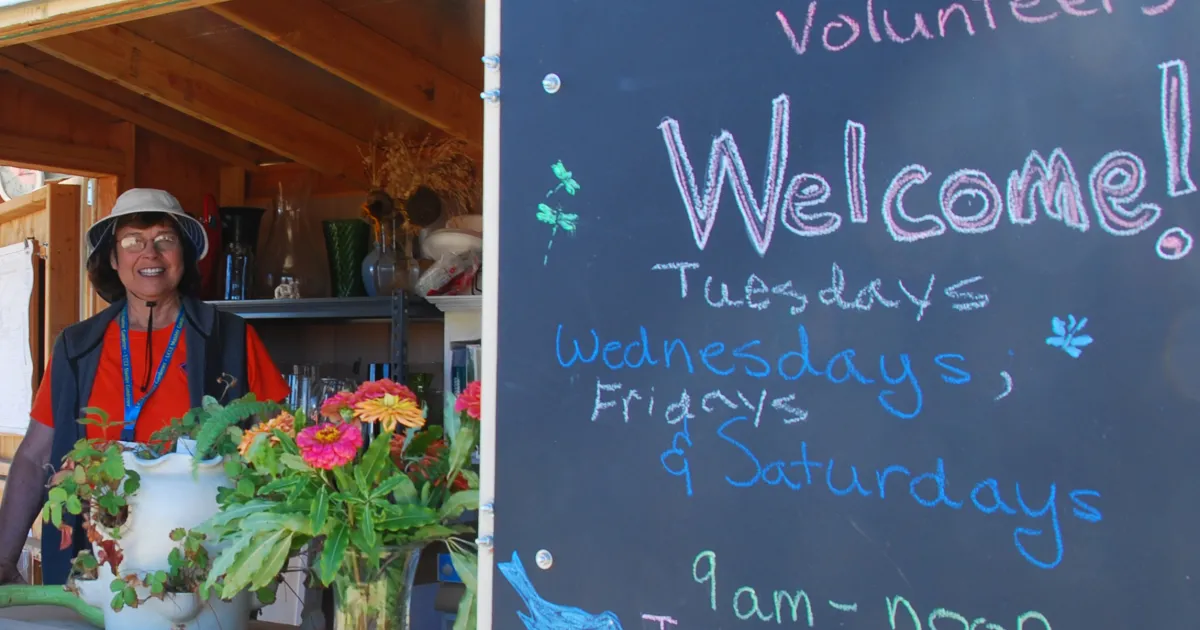 Volunteers
Welcome!
Tuesdays
Wednesdays,
Fridays
& Saturdays
9am - noon